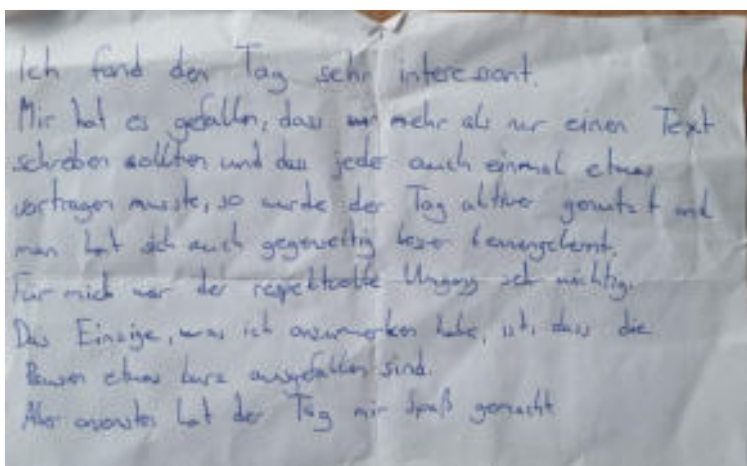 Ich fand den Tag sehr interessant.
Mir hat es gefallen, dass wir mehr als nur einen Text
schreiben sollten und das jeder auch einmal etwas
vortragen musste, so wurde der Tag aktiver genutzt und
man hat sich auch gegenseitig besser kennengelernt.
Für mich war der respektvolle Umgang sehr wichtig.
Das Einzige, was ich anzumerken habe, ist, dass die
Pausen etwas kurz ausgefallen sind.
Aber ansonsten hat der Tag mir Spaß gemacht